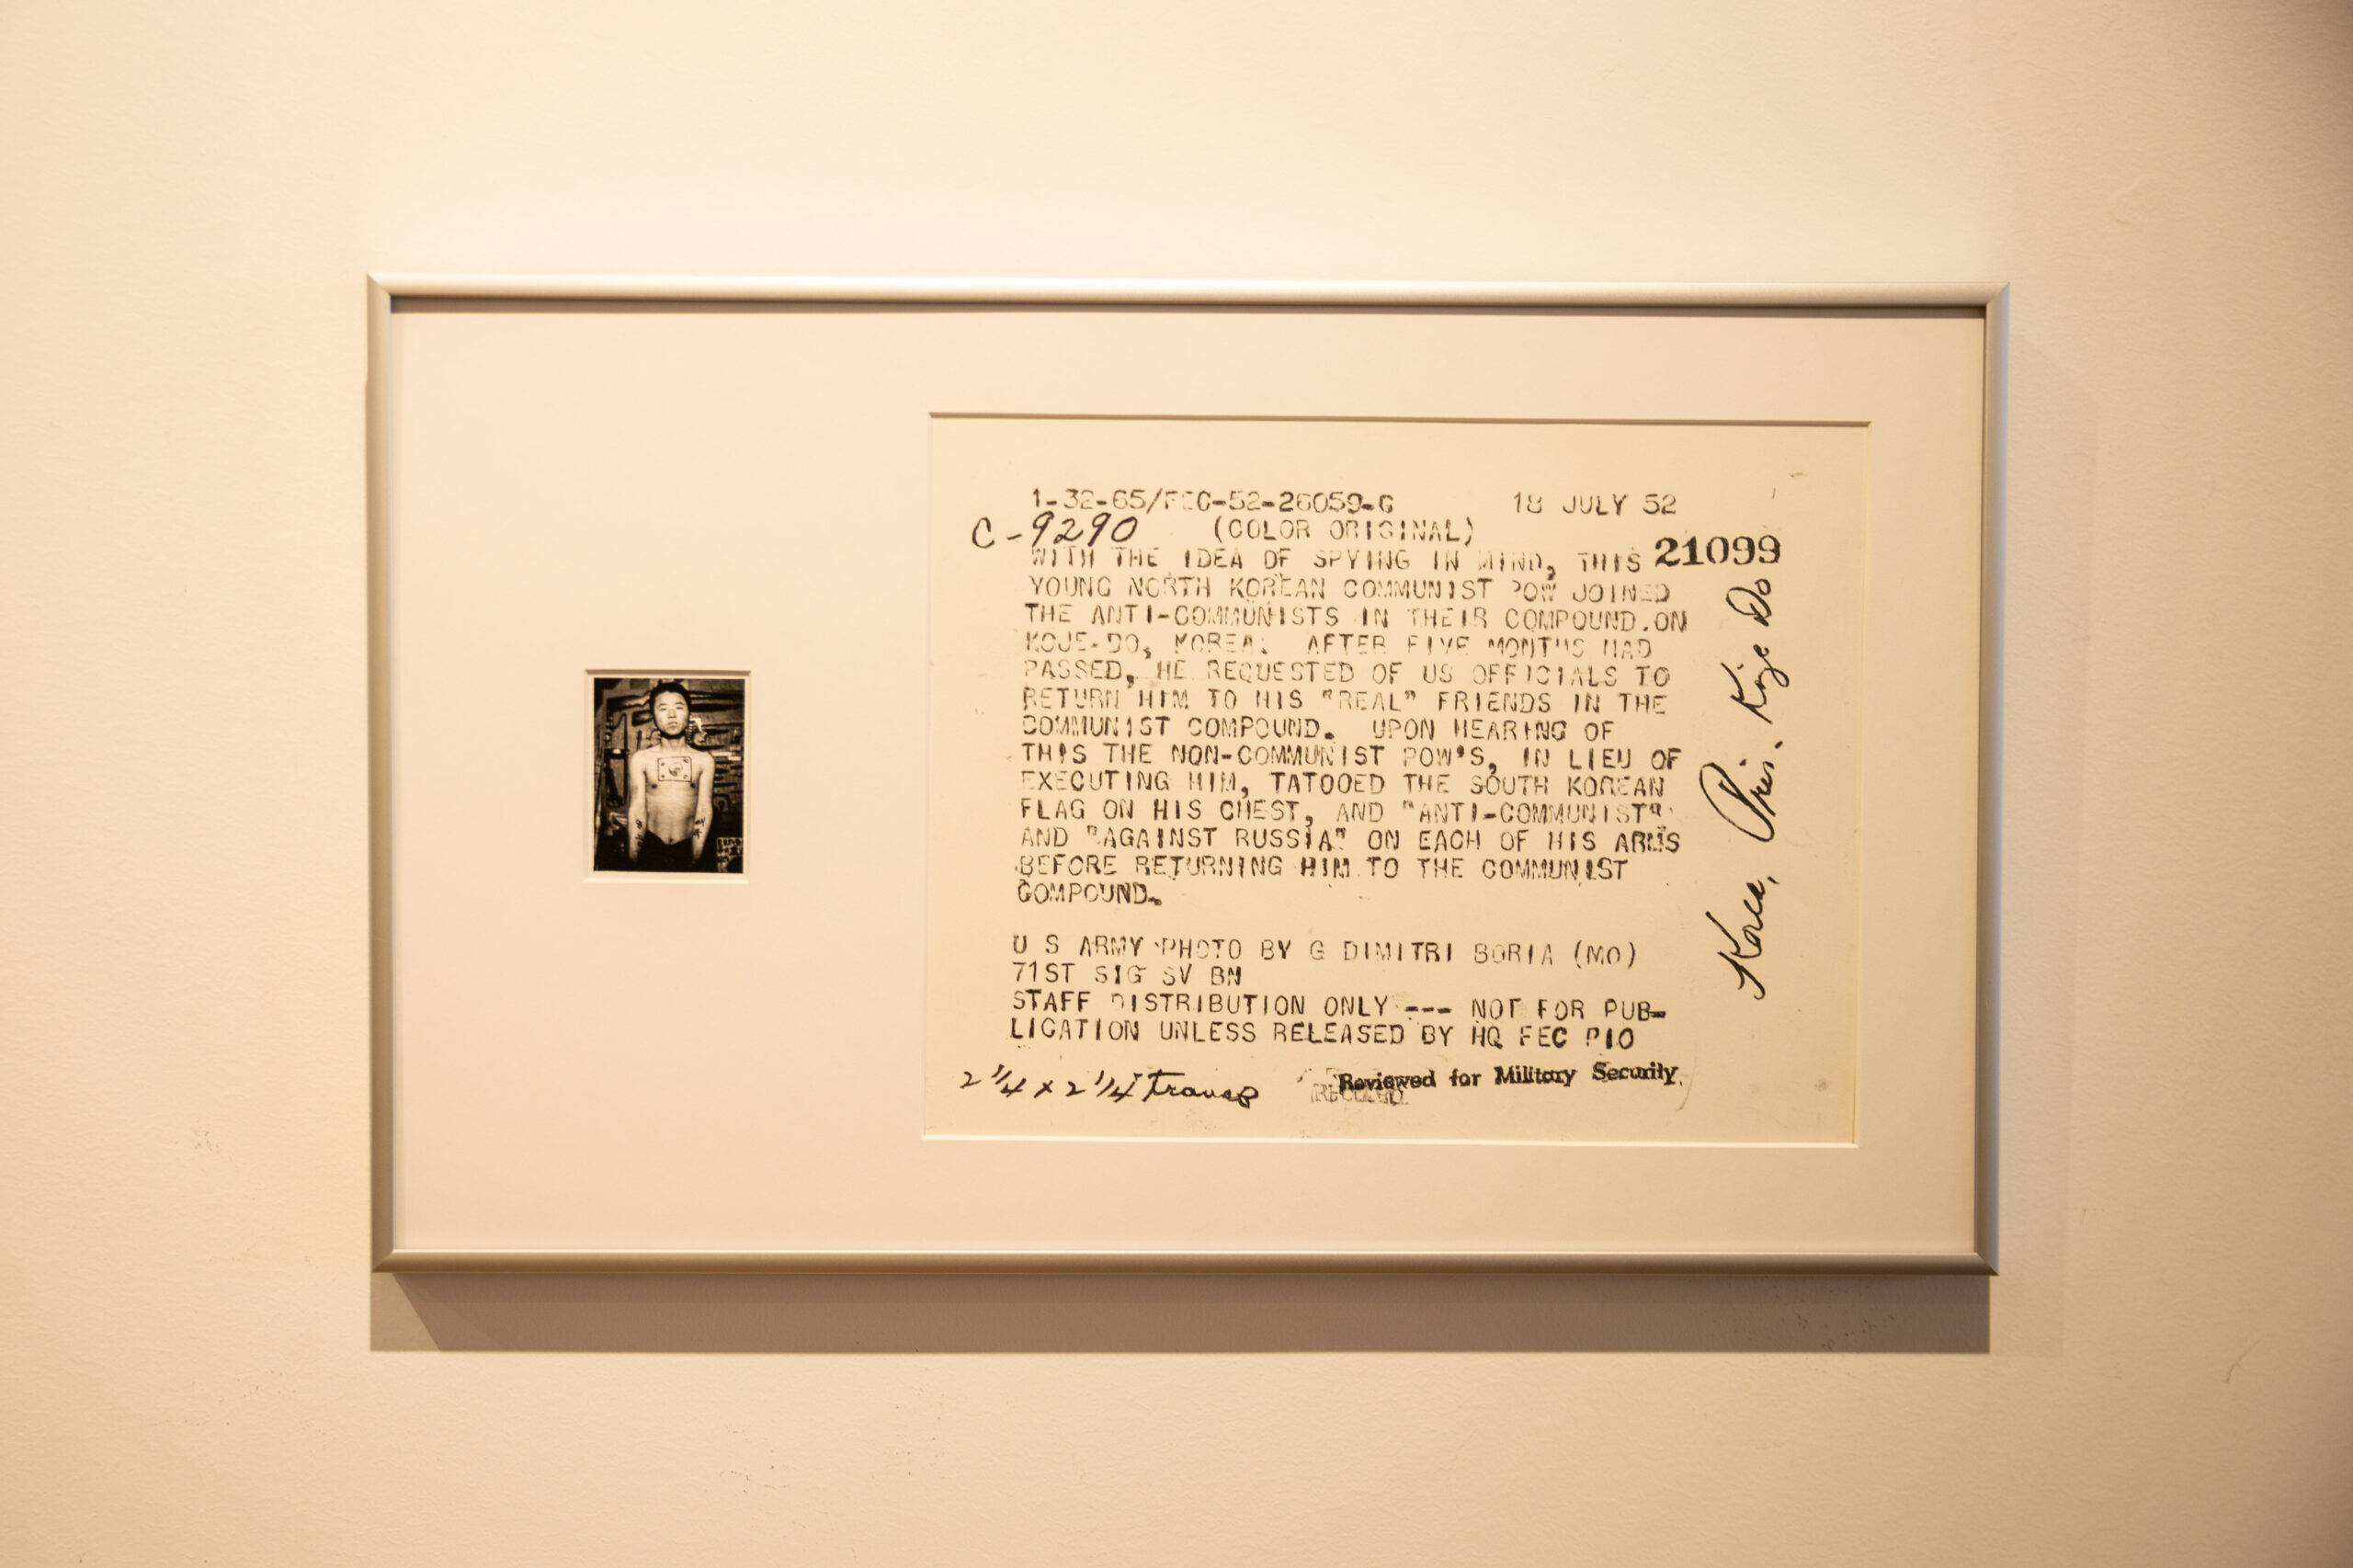 1-32-65/FEC-52-26059-C 18 JULY 52
C-9290 (COLOR ORIGINAL)
WITH THE IDEA OF SPYING IN MIND, THIS 21099
YOUNG NORTH KOREAN COMMUNIST POW JOINED
THE ANTI-COMMUNISTS IN THEIR COMPOUND.ON
KOJE-DO, KOREA. AFTER FIVE MONTHS HAD
PASSED, HE REQUESTED OF US OFFICIALS TO
RETURN HIM TO HIS "REAL" FRIENDS IN THE
COMMUNIST COMPOUND. UPON HEARING OF
THIS THE NON-COMMUNIST POW'S, IN LIEU OF
EXECUTING HIM, TATOOED THE SOUTH KOREAN
FLAG ON HIS CHEST, AND "ANTI-COMMUNIST"
AND "AGAINST RUSSIA" ON EACH OF HIS ARMS
BEFORE RETURNING HIM TO THE COMMUNIST
COMPOUND.
U S ARMY PHOTO BY G DIMITRI BORIA (MO)
71ST SIG SV BN
STAFF DISTRIBUTION ONLY --- NOT FOR PUB-
LICATION UNLESS RELEASED BY HQ FEC PIO
2 1/4 x 2 1/4 transp
Reviewed for Military Security.
Korea, Pris. Koje Do